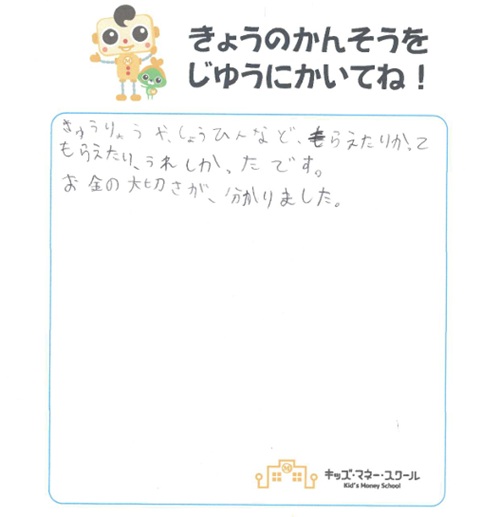 きょうのかんそうを
じゆうにかいてね！
きゅうりょうや、しょうひんなど、もらえたりかって
もらえたり、うれしかったです。
お金の大切さが、分かりました。
キッズ・マネー・スクール
Kid's Money School